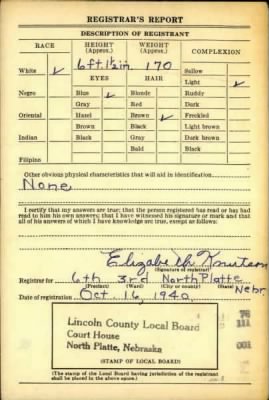 REGISTRAR'S REPORT
DESCRIPTION OF REGISTRANT
RACE HEIGHT (Approx.) WEIGHT (Approx.) COMPLEXION
White ✓ 6 ft. 1½ in. 170 Sallow
EYES HAIR Light ✓
Negro Blue ✓ Blonde Ruddy
Gray Red Dark
Oriental Hazel Brown ✓ Freckled
Brown Black Light brown
Indian Black Gray Dark brown
Bald Black
Filipino
Other obvious physical characteristics that will aid in identification
None
I certify that my answers are true; that the person registered has read or has had
read to him his own answers; that I have witnessed his signature or mark and that
all of his answers of which I have knowledge are true, except as follows:
Elizabeth Knutson
(Signature of registrar)
Registrar for 6th 3rd North Platte Nebr.
(Precinct) (Ward) (City or county) (State)
Date of registration Oct. 16, 1940
Lincoln County Local Board
Court House
North Platte, Nebraska
(STAMP OF LOCAL BOARD)
(The stamp of the Local Board having jurisdiction of the registrant
shall be placed in the above space.)